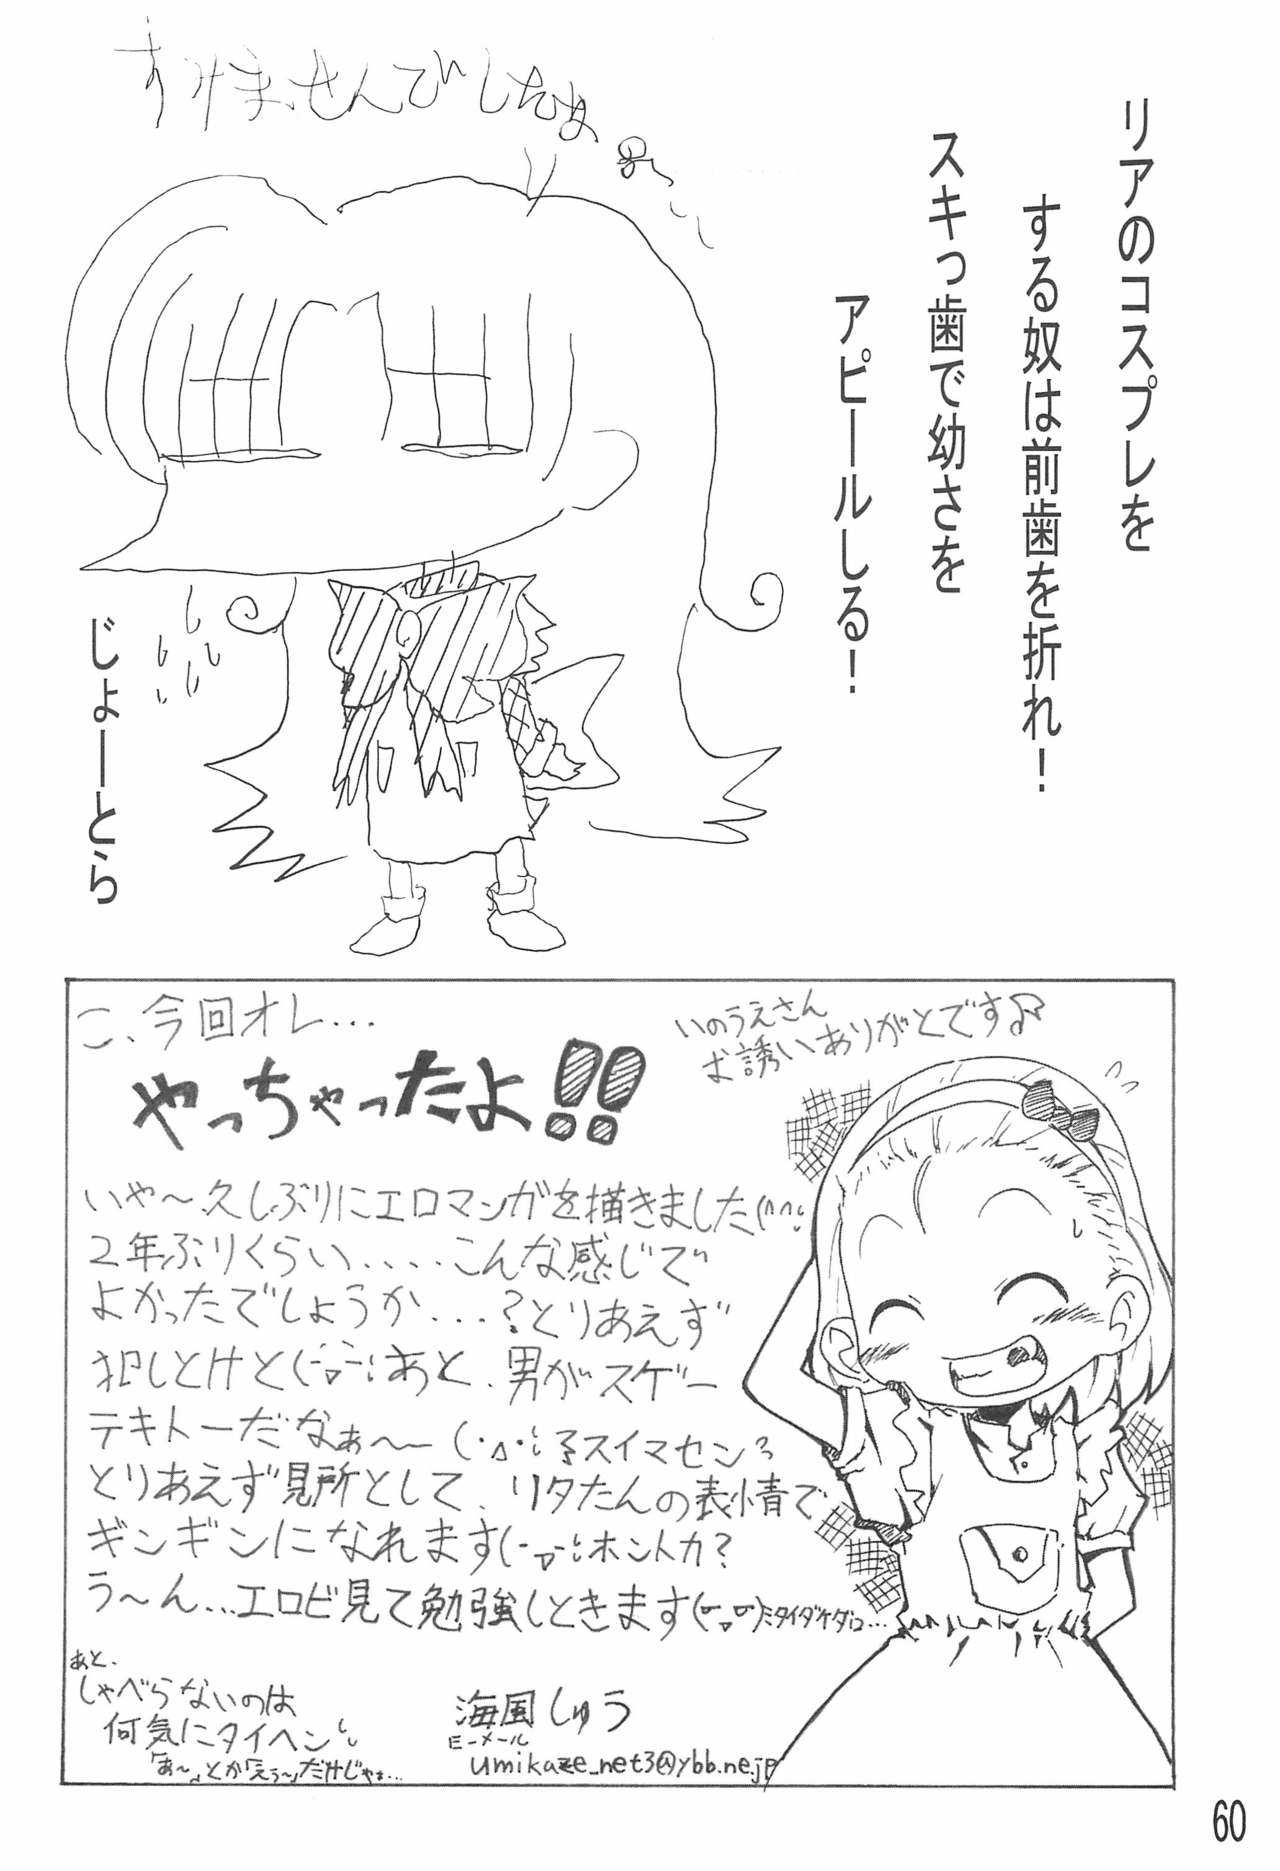 すみませんでしたぁ
リアのコスプレを
する奴は前歯を折れ!
スキっ歯で幼さを
アピールしる!
じょーとら
こ、今回オレ…
やっちゃったよ!!
いのうえさん
お誘いありがとです♪
いや〜久しぶりにエロマンガを描きました(^^;
2年ぶりくらい....こんな感じで
よかったでしょうか...?とりあえず
犯しとけと(-ロ-;あと、男がスゲー
テキトーだなぁ〜ー(・∧・;スイマセン
とりあえず見所として、リタたんの表情で
ギンギンになれます(-ロ-;ホントカ?
う〜ん…エロビ見て勉強しときます
あと、
しゃべらないのは
何気にタイヘン
「あ〜」とか「えぅ〜」だけじゃぁ…
海風しゅう
Eーメール
umikaze_net3@ybb.ne.jp
60